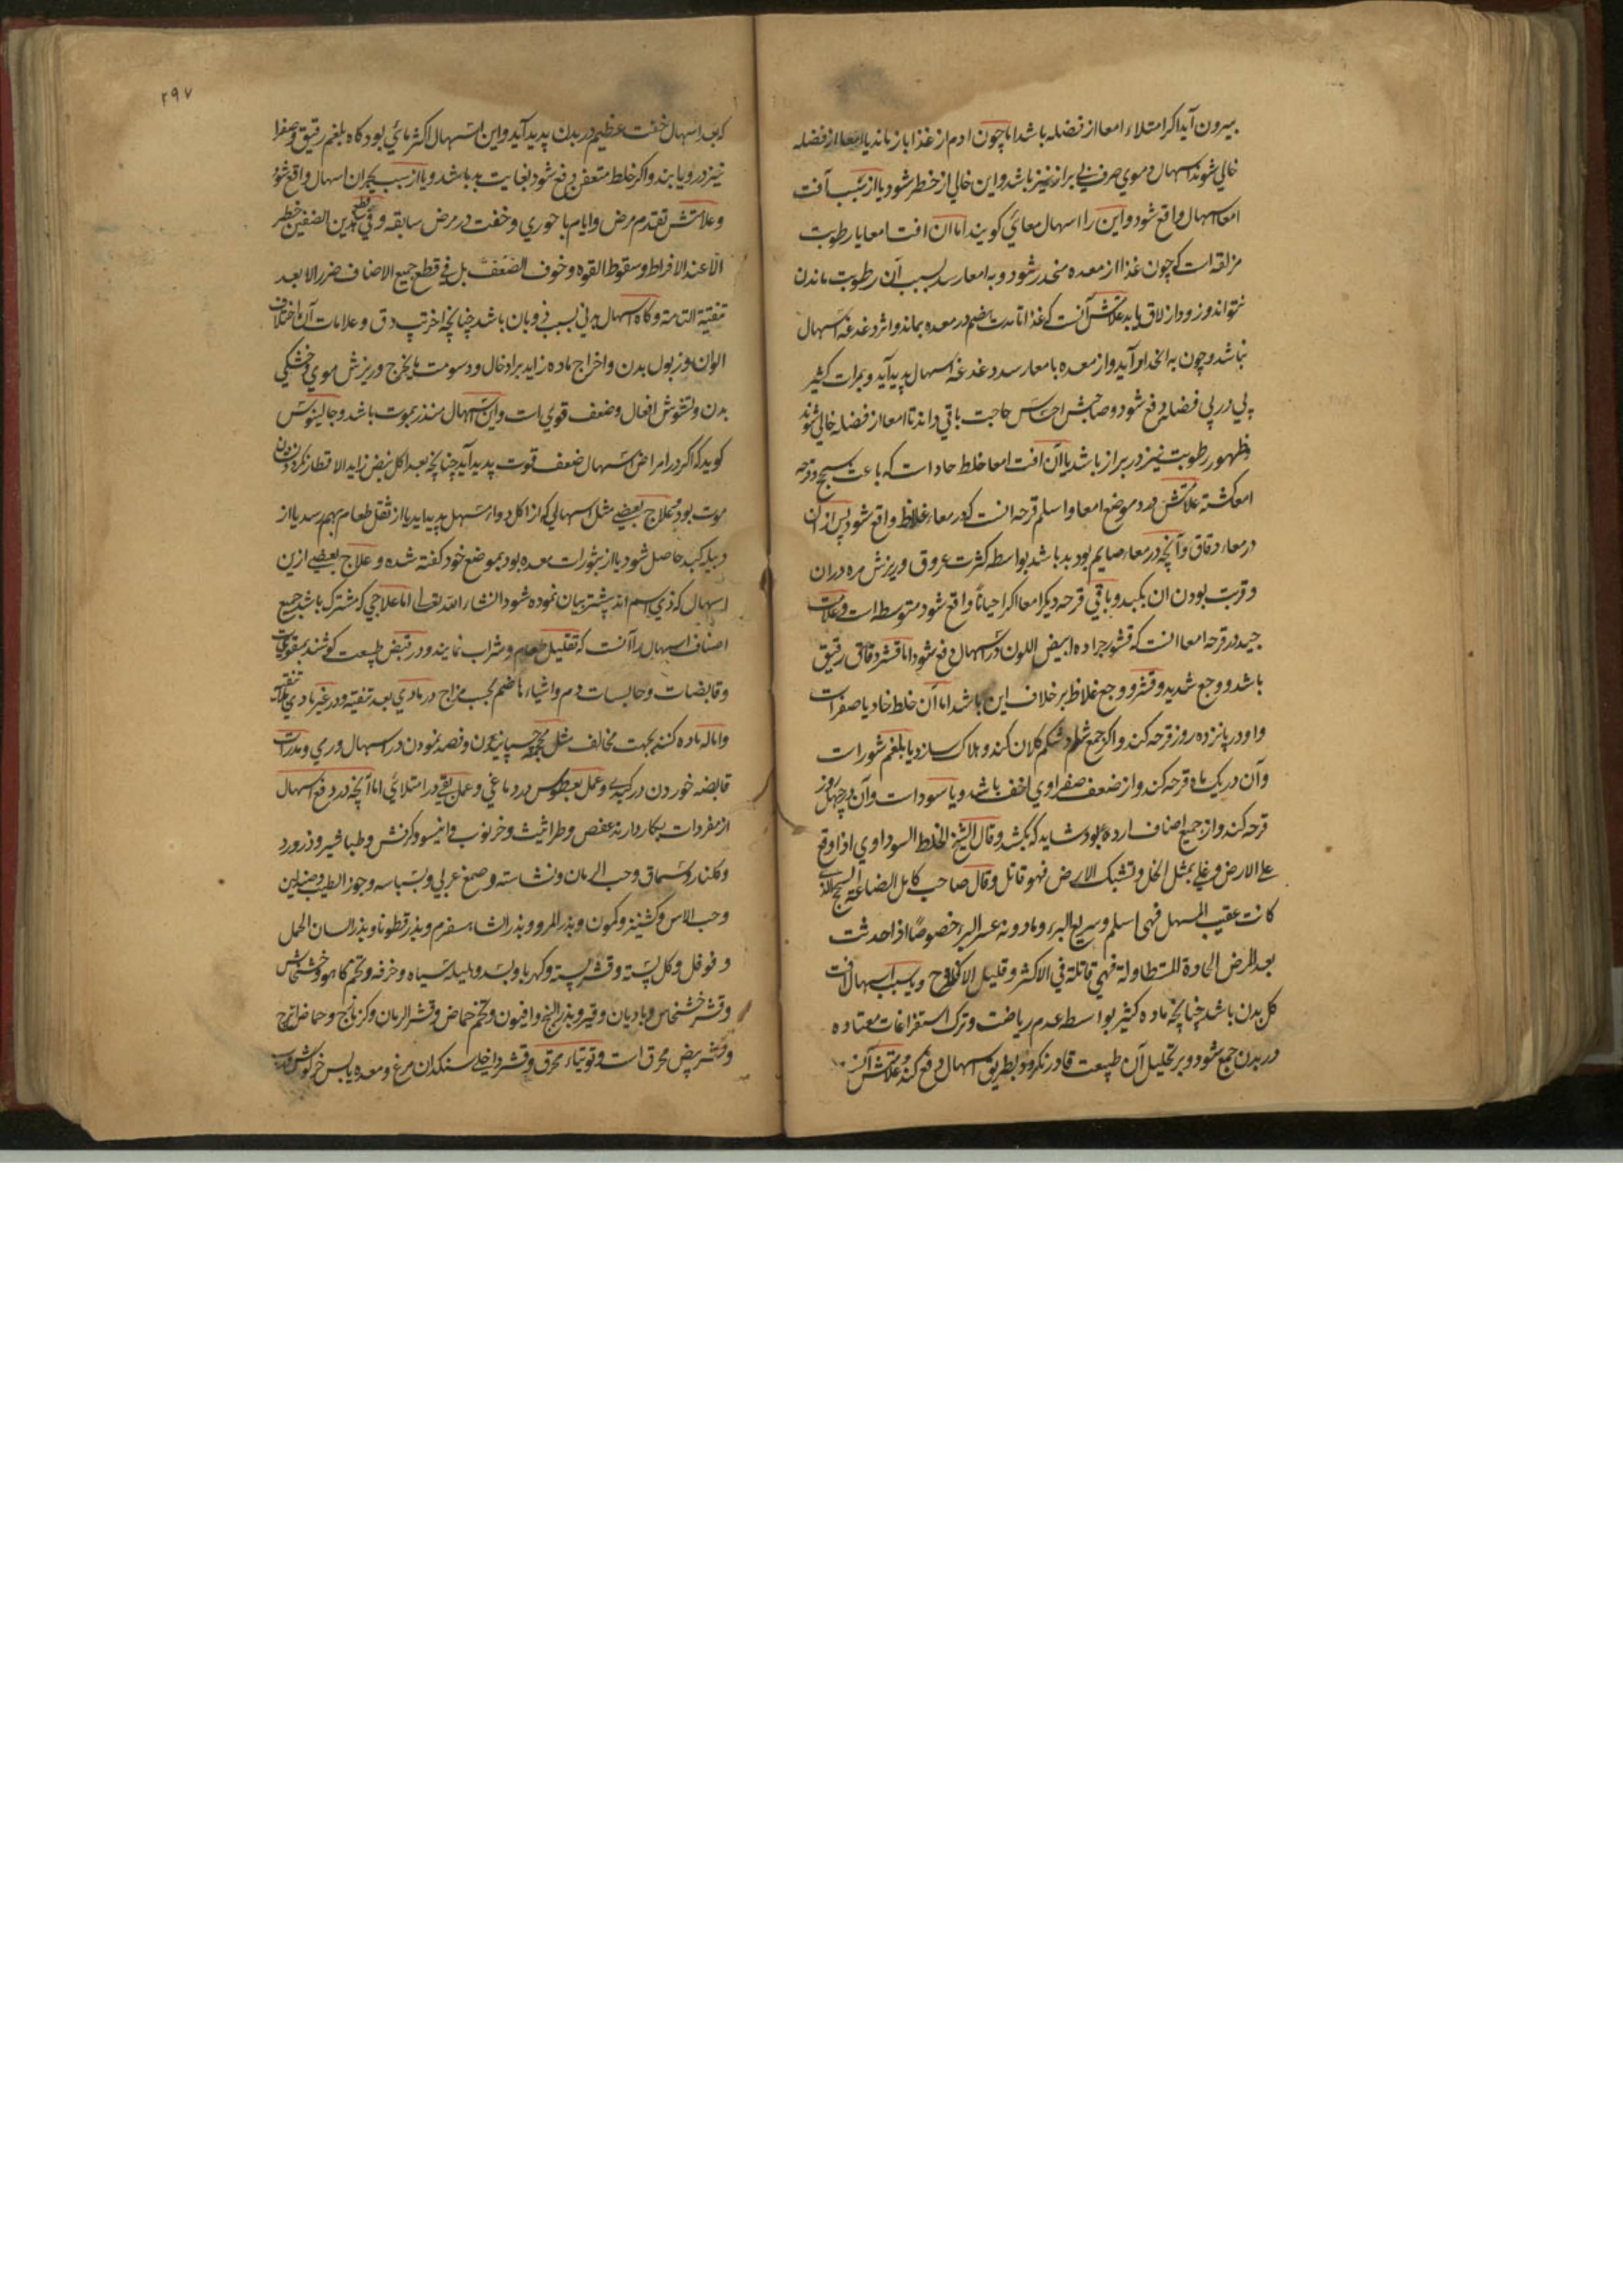 بیرون آید اگر امتلاء امعا از فضله باشد اما چون ادم از غذا باز ماند یا امعا از فضله
خالی شوند اسهال دموی صرف بی براز نیز باشد و این خالی از خطر شود یا از سبب آفت
امعا اسهال واقع شود و این را اسهال معائی کویند اما ان افت امعا یا رطوبت
مزلقه است که چون غذا از معده منحدر شود و به امعا رسد بسبب آن رطوبت ماندن
نتواند و زود ازلاق یابد علامتش آنست که غذا تا مدت هضم در معده بماند و اثر دغدغه اسهال
نباشد و چون به انحدار آید و از معده بامعا رسد دغدغه اسهال پدید آید و بمرات کثیر
پی در پی فضله دفع شود و صاحبش احساس حاجت باقی داند تا امعا از فضله خالی شوند
و ظهور رطوبت نیز در براز باشد یا آن افت امعا خلط حاد است که باعث سحج و قرحه
امعا کشته علامتش درد موضع امعا و اسلم قرحه انست که در معاء غلاظ واقع شود پس از ان
در معاء دقاق و آنچه در معاء صایم بود بد باشد بواسطه کثرت عروق و ریزش مره دران
و قربت بودن ان بکبد و باقی قرحه دیکر امعا اکر احیاناً واقع شود متوسطه است و علامت
جید در قرحه امعا انست که قشور جراده ابیض اللون در اسهال دفع شود اما قشر دقاقی رقیق
باشد و وجع شدید و قشر و وجع غلاظ بر خلاف این باشد اما آن خلط حاد یا صفرا است
و او در پانزده روز قرحه کند و اکر جمع شود شکم کلان کند و هلاک سازد یا بلغم شور است
و آن در یک ماه قرحه کند و از ضعف صفراوی اخف باشد و یا سودا است و آن در چهل روز
قرحه کند و از جمیع اصناف ارده بود شاید که بکشد و قال الشیخ الخلط السوداوی اذا وقع
علی الارض و غلی بمثل الخل و تشبک الارض فهو قاتل و قال صاحب کامل الصناعة السحج الذی
کانت عقیب المسهل فهی اسلم و سریع البرء و مادونه عسر البرء خصوصاً اذا حدثت
بعد المرض الحادة المتطاولة فهی قاتلة فی الاکثر و قلیل الافلاح و یا بسبب اسهال افت
کل بدن باشد چنانچه ماده کثیر بواسطه عدم ریاضت و ترک استفراغات معتاده
در بدن جمع شود و بر تحلیل آن طبیعت قادر نکردد بطریق اسهال دفع کند علامتش آنست
۲۹۷
که بعد اسهال خفت عظیم در بدن پدید آید و این اسهال اکثر مائی بود کاه بلغم رقیق و صفرا
نیز درو یابند و اکر خلط متعفن دفع شود بغایت بد باشد و یا از سبب بحران اسهال واقع شود
و علامتش تقدم مرض و ایام باحوری و خفت در مرض سابقه و فی قطع هذین الصنفین خطر
الا عند الافراط و سقوط القوه و خوف الضعف بل فی قطع جمیع الاصناف ضرر الا بعد
تنقیة التامة و کاه اسهال بدنی بسبب ذوبان باشد چنانچه اخر تب دق و علامات آن اختلاف
الوان و زبول بدن و اخراج ماده زاید بر ادخال و دسومت مایخرج و ریزش موی و خشکی
بدن و تشوش افعال و ضعف قوی است و این اسهال منذر بموت باشد و جالینوس
کوید که اکر در امراض اسهال ضعف قوت پدید آید چنانچه بعد اکل نبض زاید الاقطار نکردد
موت بود و علاج بعضی مثل اسهالی که از اکل دواء مسهل پدید آید یا از ثقل طعام بهم رسد یا از
دبیله کبد حاصل شود یا از بثورات معده بود بموضع خود کفته شده و علاج بعضی ازین
اسهال که ذی اسم اند پیشتر بیان نموده شود انشاءالله تعالی اما علاجی که مشترک باشد جمیع
اصناف اسهال را آنست که تقلیل طعام و شراب نمایند و در قبض طبیعت کوشند بمقویات
و قابضات و حابسات دم و اشیاء هاضم بحسب مزاج در مادی بعد تنقیه و در غیر مادی بلا تنقیه
و اماله ماده کنند بجهت مخالف مثل محجمه چسپانیدن و فصد نمودن در اسهال دوری و مدرات
قابضه خوردن در کبدی و عمل بعطوس در دماغی و عمل بقی در امتلائی اما آنچه در دفع اسهال
از مفردات بکار دارند عفص و طراثیث و خرنوب و انیسو و کرفش و طباشیر و ذرورد
و کلنار و سماق و حب الرمان و نشاسته و صمغ عربی و بسباسه و جوز الطیب و صندلین
و حب الاس و کشنیز و کمون و بذر المرو و بذر الشاهسفرم و بذر قطونا و بذر لسان الحمل
و فوفل و کل پسته و قشر پسته و کهربا و بسد و هلیله سیاه و خرفه و تخم کاهو و خشخاش
و قشر خشخاش و بادیان و قیر و بذر البنج و افیون و تخم حماض و قشر الرمان و کزمازج و حماض اترج
و قشر بیض محرق است و توتیاء محرق و قشر داخلی سنکدان مرغ و معده یابس خرکوش